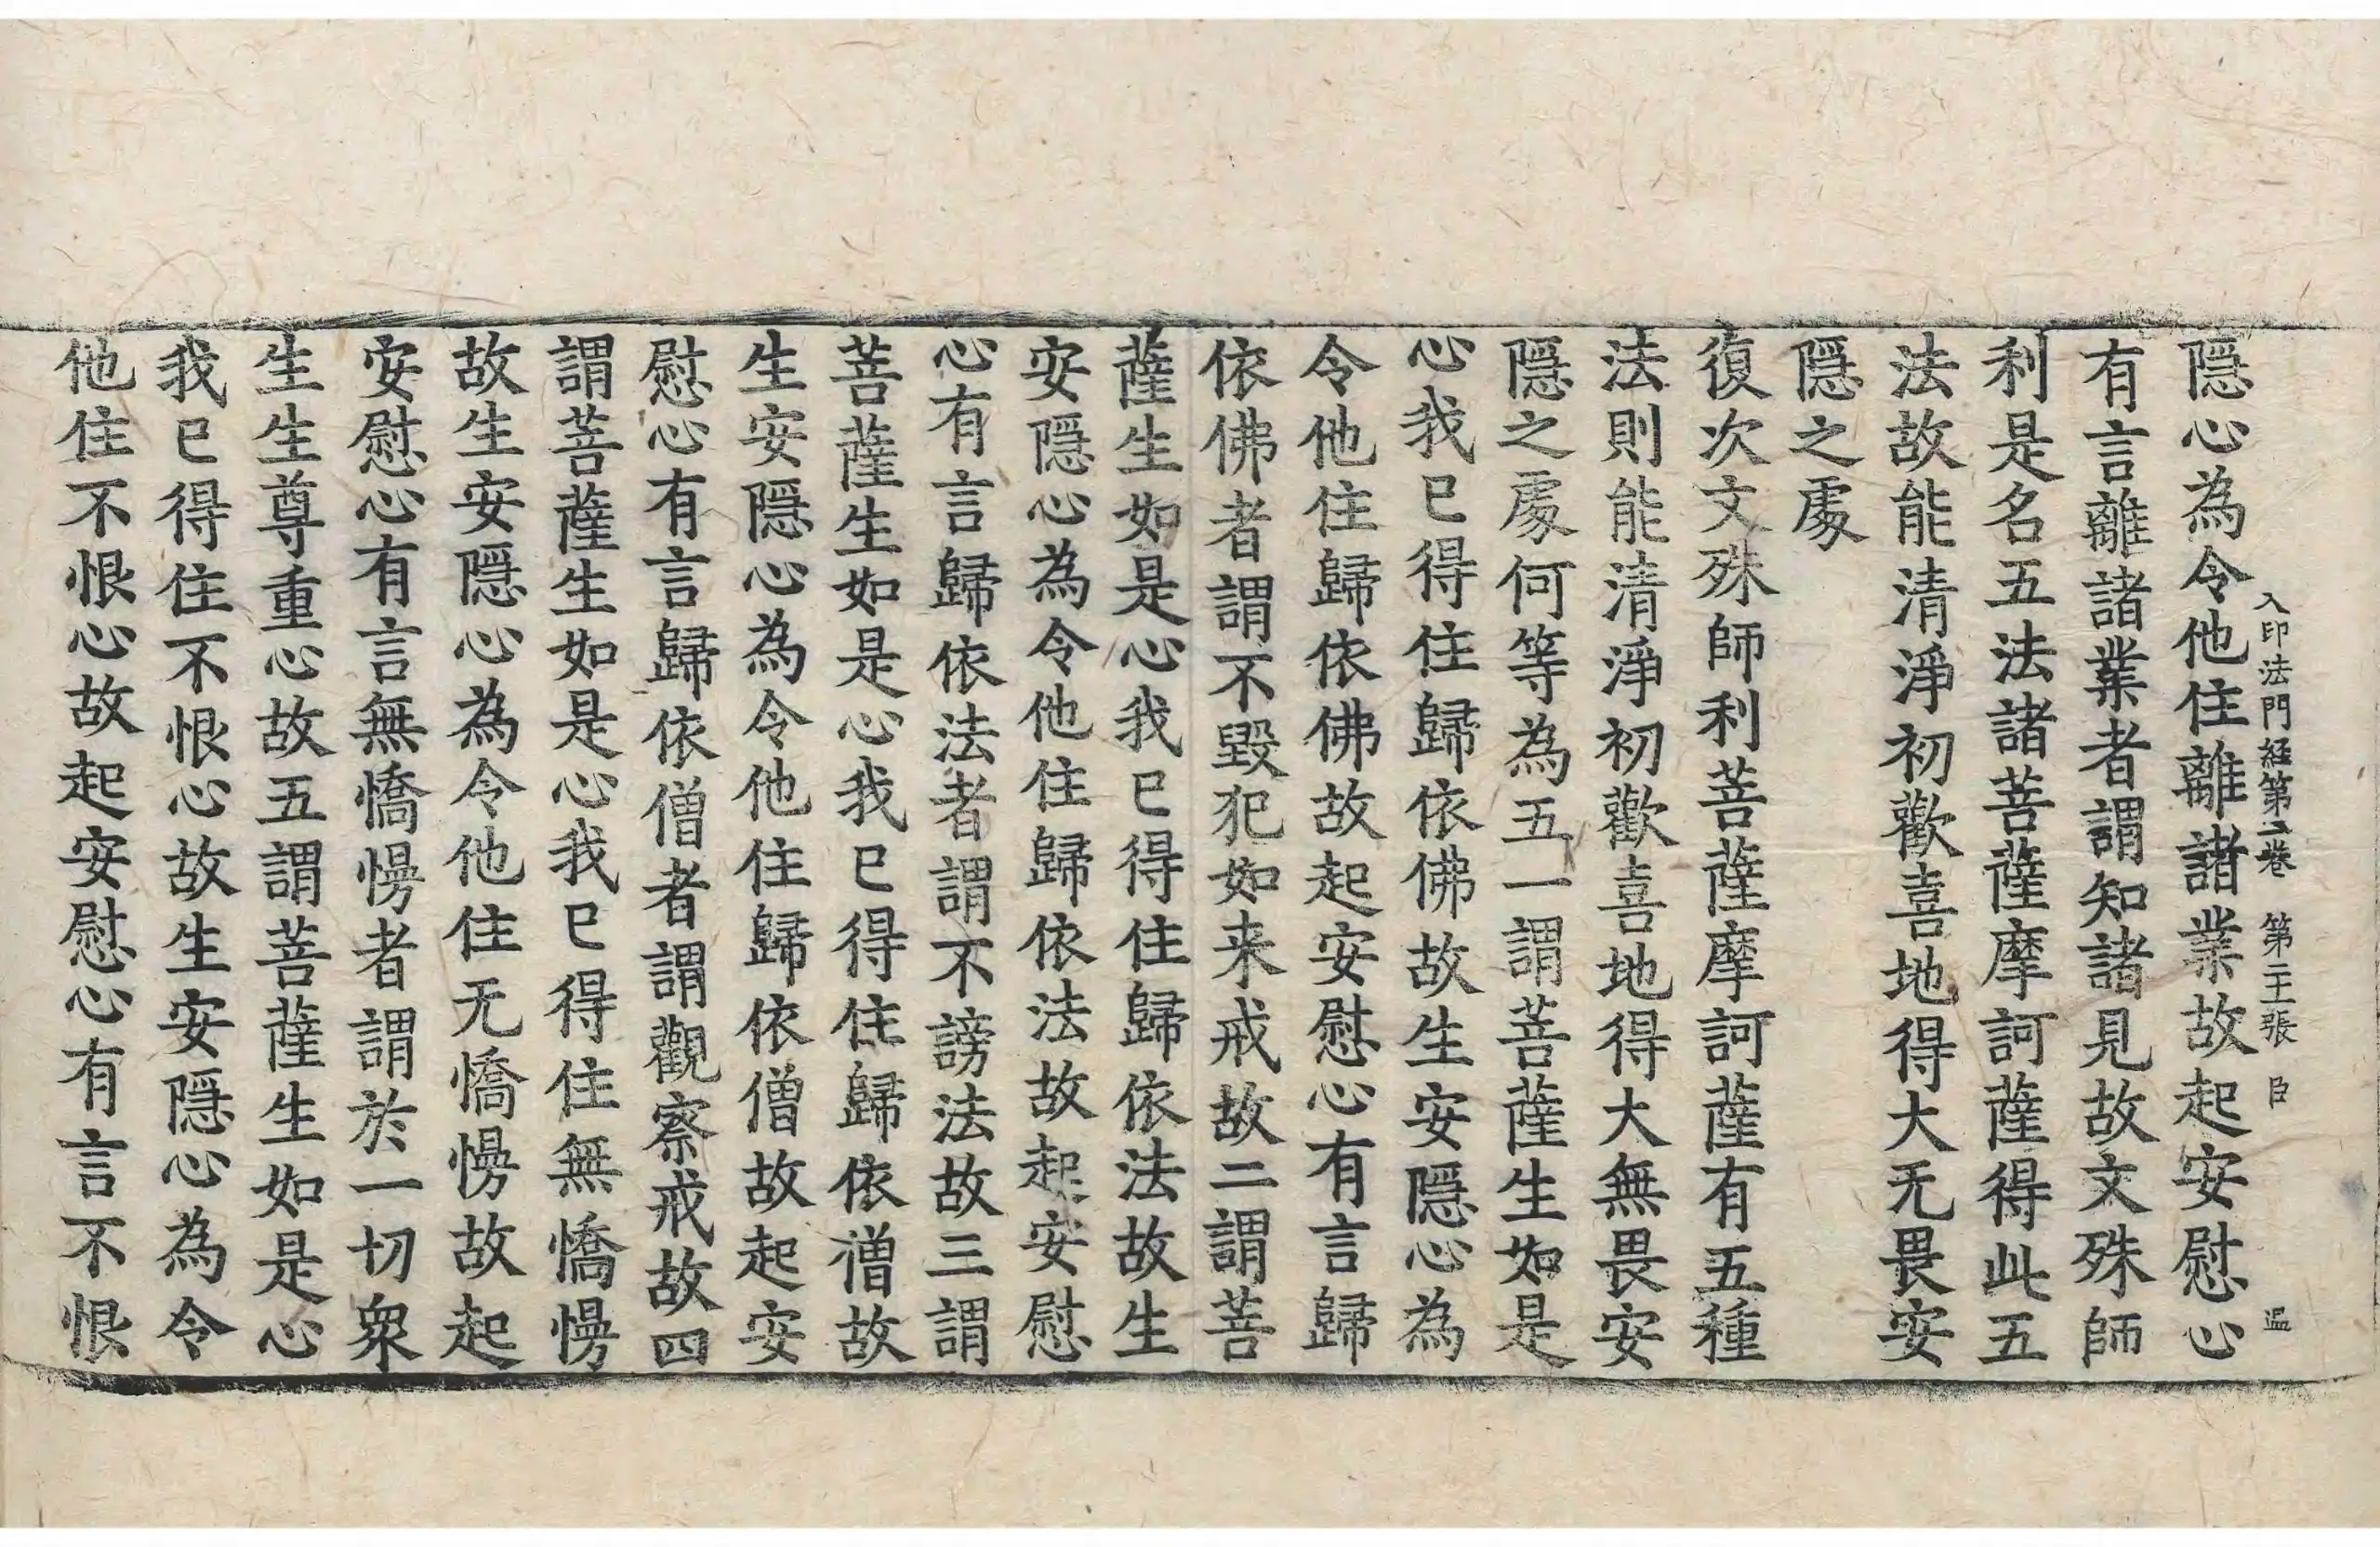 入印法門經第二卷 第二十三張 臣 温
隱心為令他住離諸業故起安慰心
有言離諸業者謂知諸見故文殊師
利是名五法諸菩薩摩訶薩得此五
法故能清淨初歡喜地得大无畏安
隱之處
復次文殊師利菩薩摩訶薩有五種
法則能清淨初歡喜地得大無畏安
隱之處何等為五一謂菩薩生如是
心我已得住歸依佛故生安隱心為
令他住歸依佛故起安慰心有言歸
依佛者謂不毀犯如来戒故二謂菩
薩生如是心我已得住歸依法故生
安隱心為令他住歸依法故起安慰
心有言歸依法者謂不謗法故三謂
菩薩生如是心我已得住歸依僧故
生安隱心為令他住歸依僧故起安
慰心有言歸依僧者謂觀察戒故四
謂菩薩生如是心我已得住無憍慢
故生安隱心為令他住无憍慢故起
安慰心有言無憍慢者謂於一切衆
生生尊重心故五謂菩薩生如是心
我已得住不恨心故生安隱心為令
他住不恨心故起安慰心有言不恨